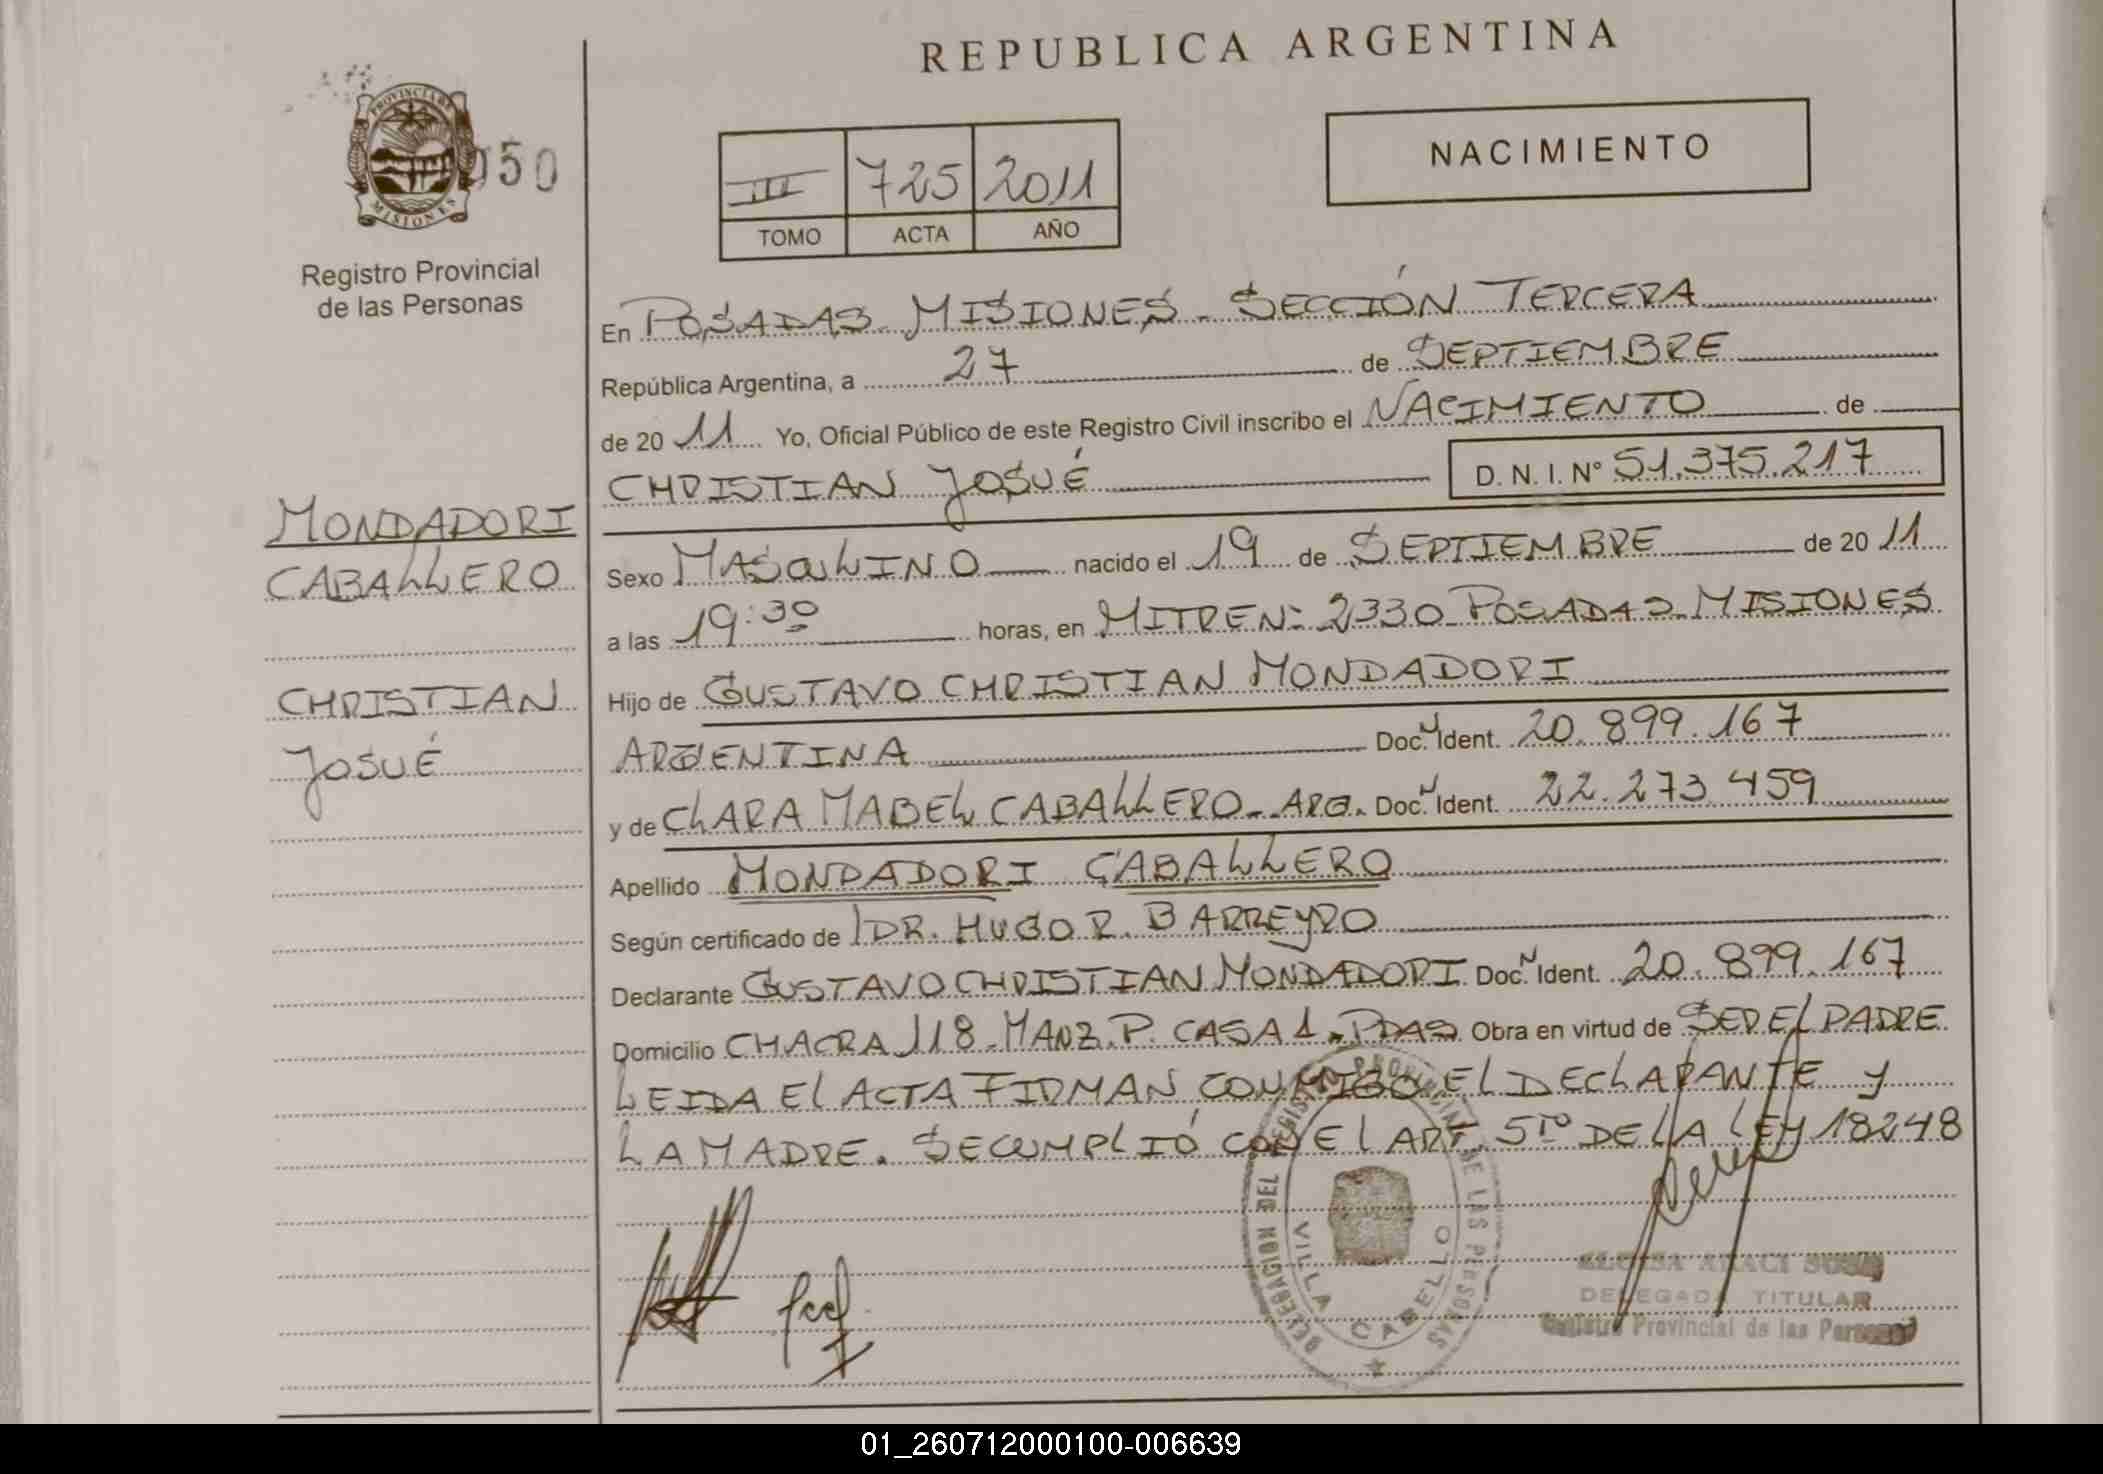 REPUBLICA ARGENTINA
PROVINCIA DE
MISIONES
050
Registro Provincial
de las Personas
III 725 2011
TOMO ACTA AÑO
NACIMIENTO
En POSADAS MISIONES - SECCIÓN TERCERA
República Argentina, a 27 de SEPTIEMBRE
de 2011 Yo, Oficial Público de este Registro Civil inscribo el NACIMIENTO de
CHRISTIAN JOSUÉ D. N. I. N° 51.375.217
MONDADORI
CABALLERO
CHRISTIAN
JOSUÉ
Sexo MASCULINO nacido el 19 de SEPTIEMBRE de 2011
a las 19:30 horas, en MITRE N: 2330 POSADAS MISIONES
Hijo de GUSTAVO CHRISTIAN MONDADORI
ARGENTINA Doc. N Ident. 20.899.167
y de CLARA MABEL CABALLERO - ARG. Doc. N Ident. 22.273.459
Apellido MONDADORI CABALLERO
Según certificado de DR. HUGO R. BARREYRO
Declarante GUSTAVO CHRISTIAN MONDADORI Doc. N Ident. 20.899.167
Domicilio CHACRA 118 - MANZ. P. CASA 1 - PDAS Obra en virtud de SER EL PADRE
LEIDA EL ACTA FIRMAN CONMIGO EL DECLARANTE y
LA MADRE. SE CUMPLIÓ CON EL ART. 5TO DE LA LEY 18248
DELEGACION DEL REGISTRO PROVINCIAL DE LAS PERSONAS
VILLA CABELLO
DELEGADA TITULAR
Registro Provincial de las Personas
01_260712000100-006639